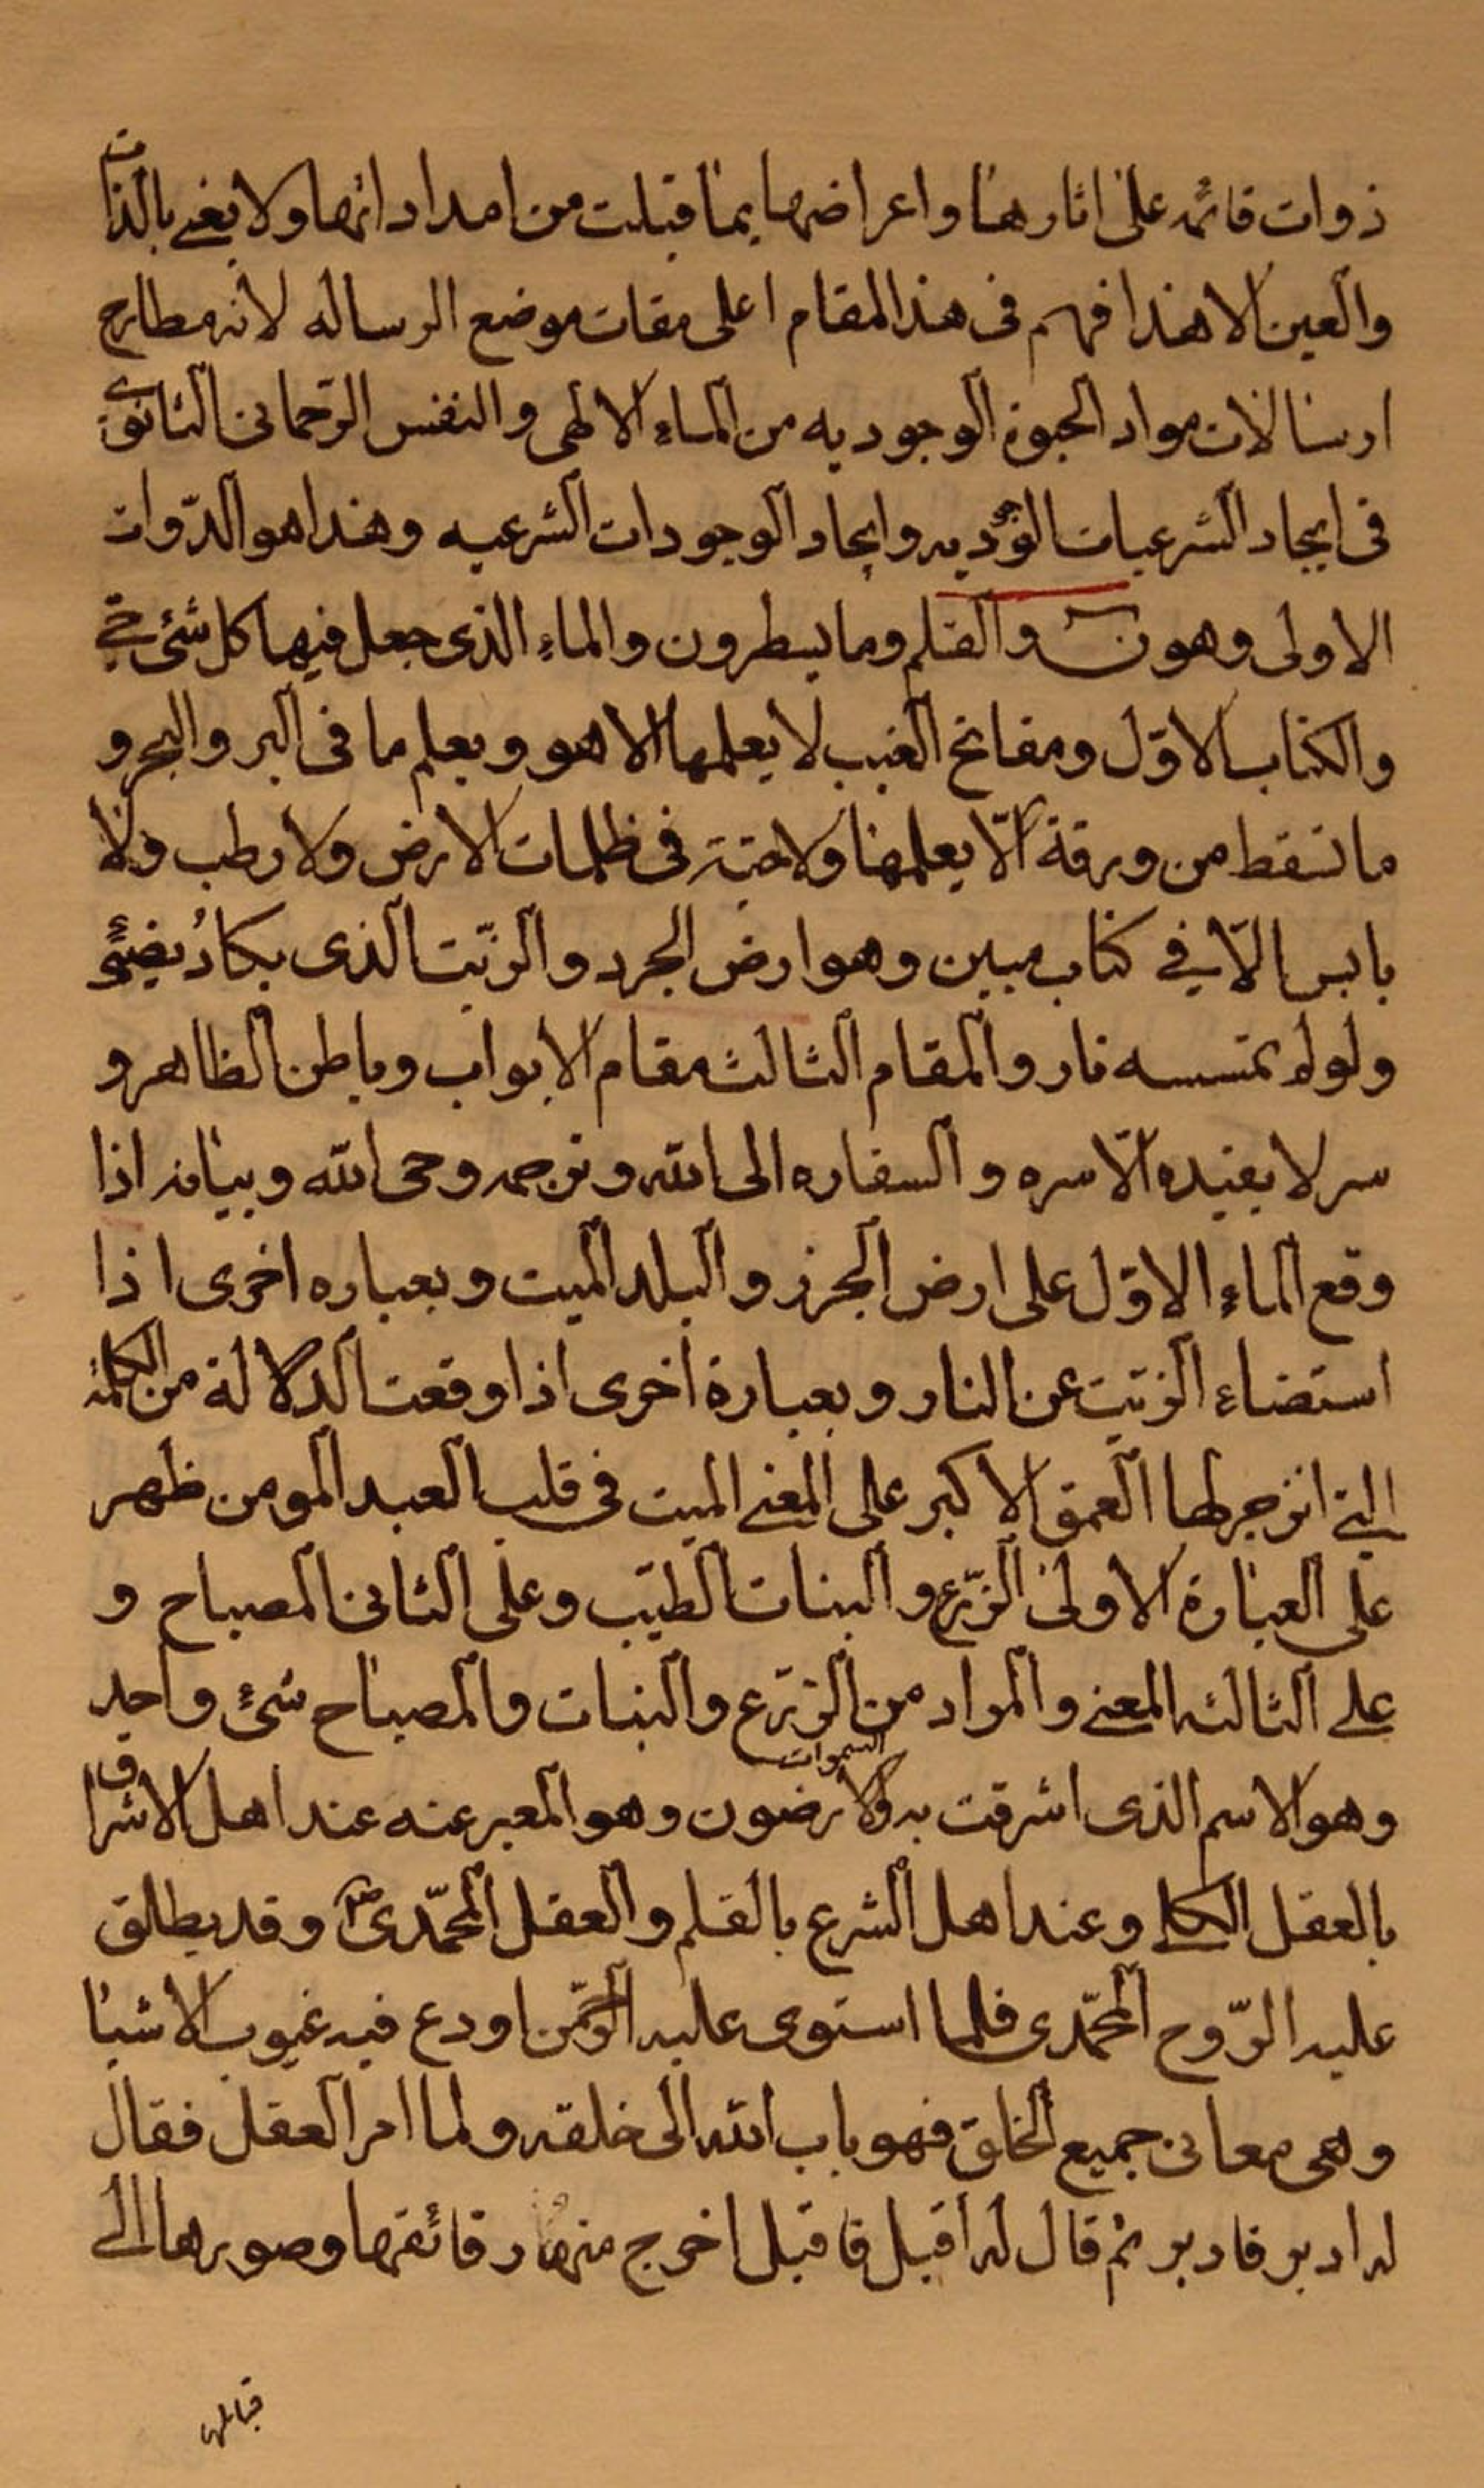 ذوات قائمه على اثارها واعراضها بما قبلت من امداداتها ولا يغنى بالذات
والعين الا هذا فهم فى هذا المقام اعلى مقات موضع الرساله لانه مطارح
ارسالات مواد الحيوة الوجوديه من الماء الالهى والنفس الرحمانى الثانوى
فى ايجاد الشرعيات الوجوديه وايجاد الوجودات الشرعيه وهذا هو الدوات
الاولى وهو ن والقلم وما يسطرون والماء الذى جعل فيها كل شئ حى
والكتاب الاوّل ومفاتح الغيب لا يعلمها الا هو ويعلم ما فى البر والبحر و
ما تسقط من ورقة الّا يعلمها ولا حبة فى ظلمات الارض ولا رطب ولا
يابس الّا فى كتاب مبين وهو ارض الجرد والزيت الذى يكادُ يضيئ
ولو لم تمسسه نار والمقام الثالث مقام الابواب وباطن الظاهر و
سر لا يفيده الّا سره والسفاره الى الله وترجمه وحى الله وبيانه اذا
وقع الماء الاوّل على ارض الجرز والبلد الميت وبعباره اخرى اذا
استضاء الزيت عن النار وبعبارة اخرى اذا وقعت الدلالة من الكلمة
التى انزجر لها العمق الاكبر على المعنى الميت فى قلب العبد المومن ظهر
على العبارة الاولى الزرع والبنات الطيّب وعلى الثانى المصباح و
على الثالثه المعنى والمواد من الزرع والنبات والمصباح شئ واحد
وهو الاسم الذى اشرقت به السموات والارضون وهو المعبر عنه عند اهل الاشراق
بالعقل الكلى وعند اهل الشرع بالقلم والعقل المحمّدى ص وقد يطلق
عليه الرّوح المحمّدى فلما استوى عليه الرحمن اودع فيه غيوب الاشيا
وهى معانى جميع الخلق فهو باب الله الى خلقه ولما امر العقل فقال
له ادبر فادبر ثم قال له اقبل فاقبل اخرج منها رقائقها وصورها الى